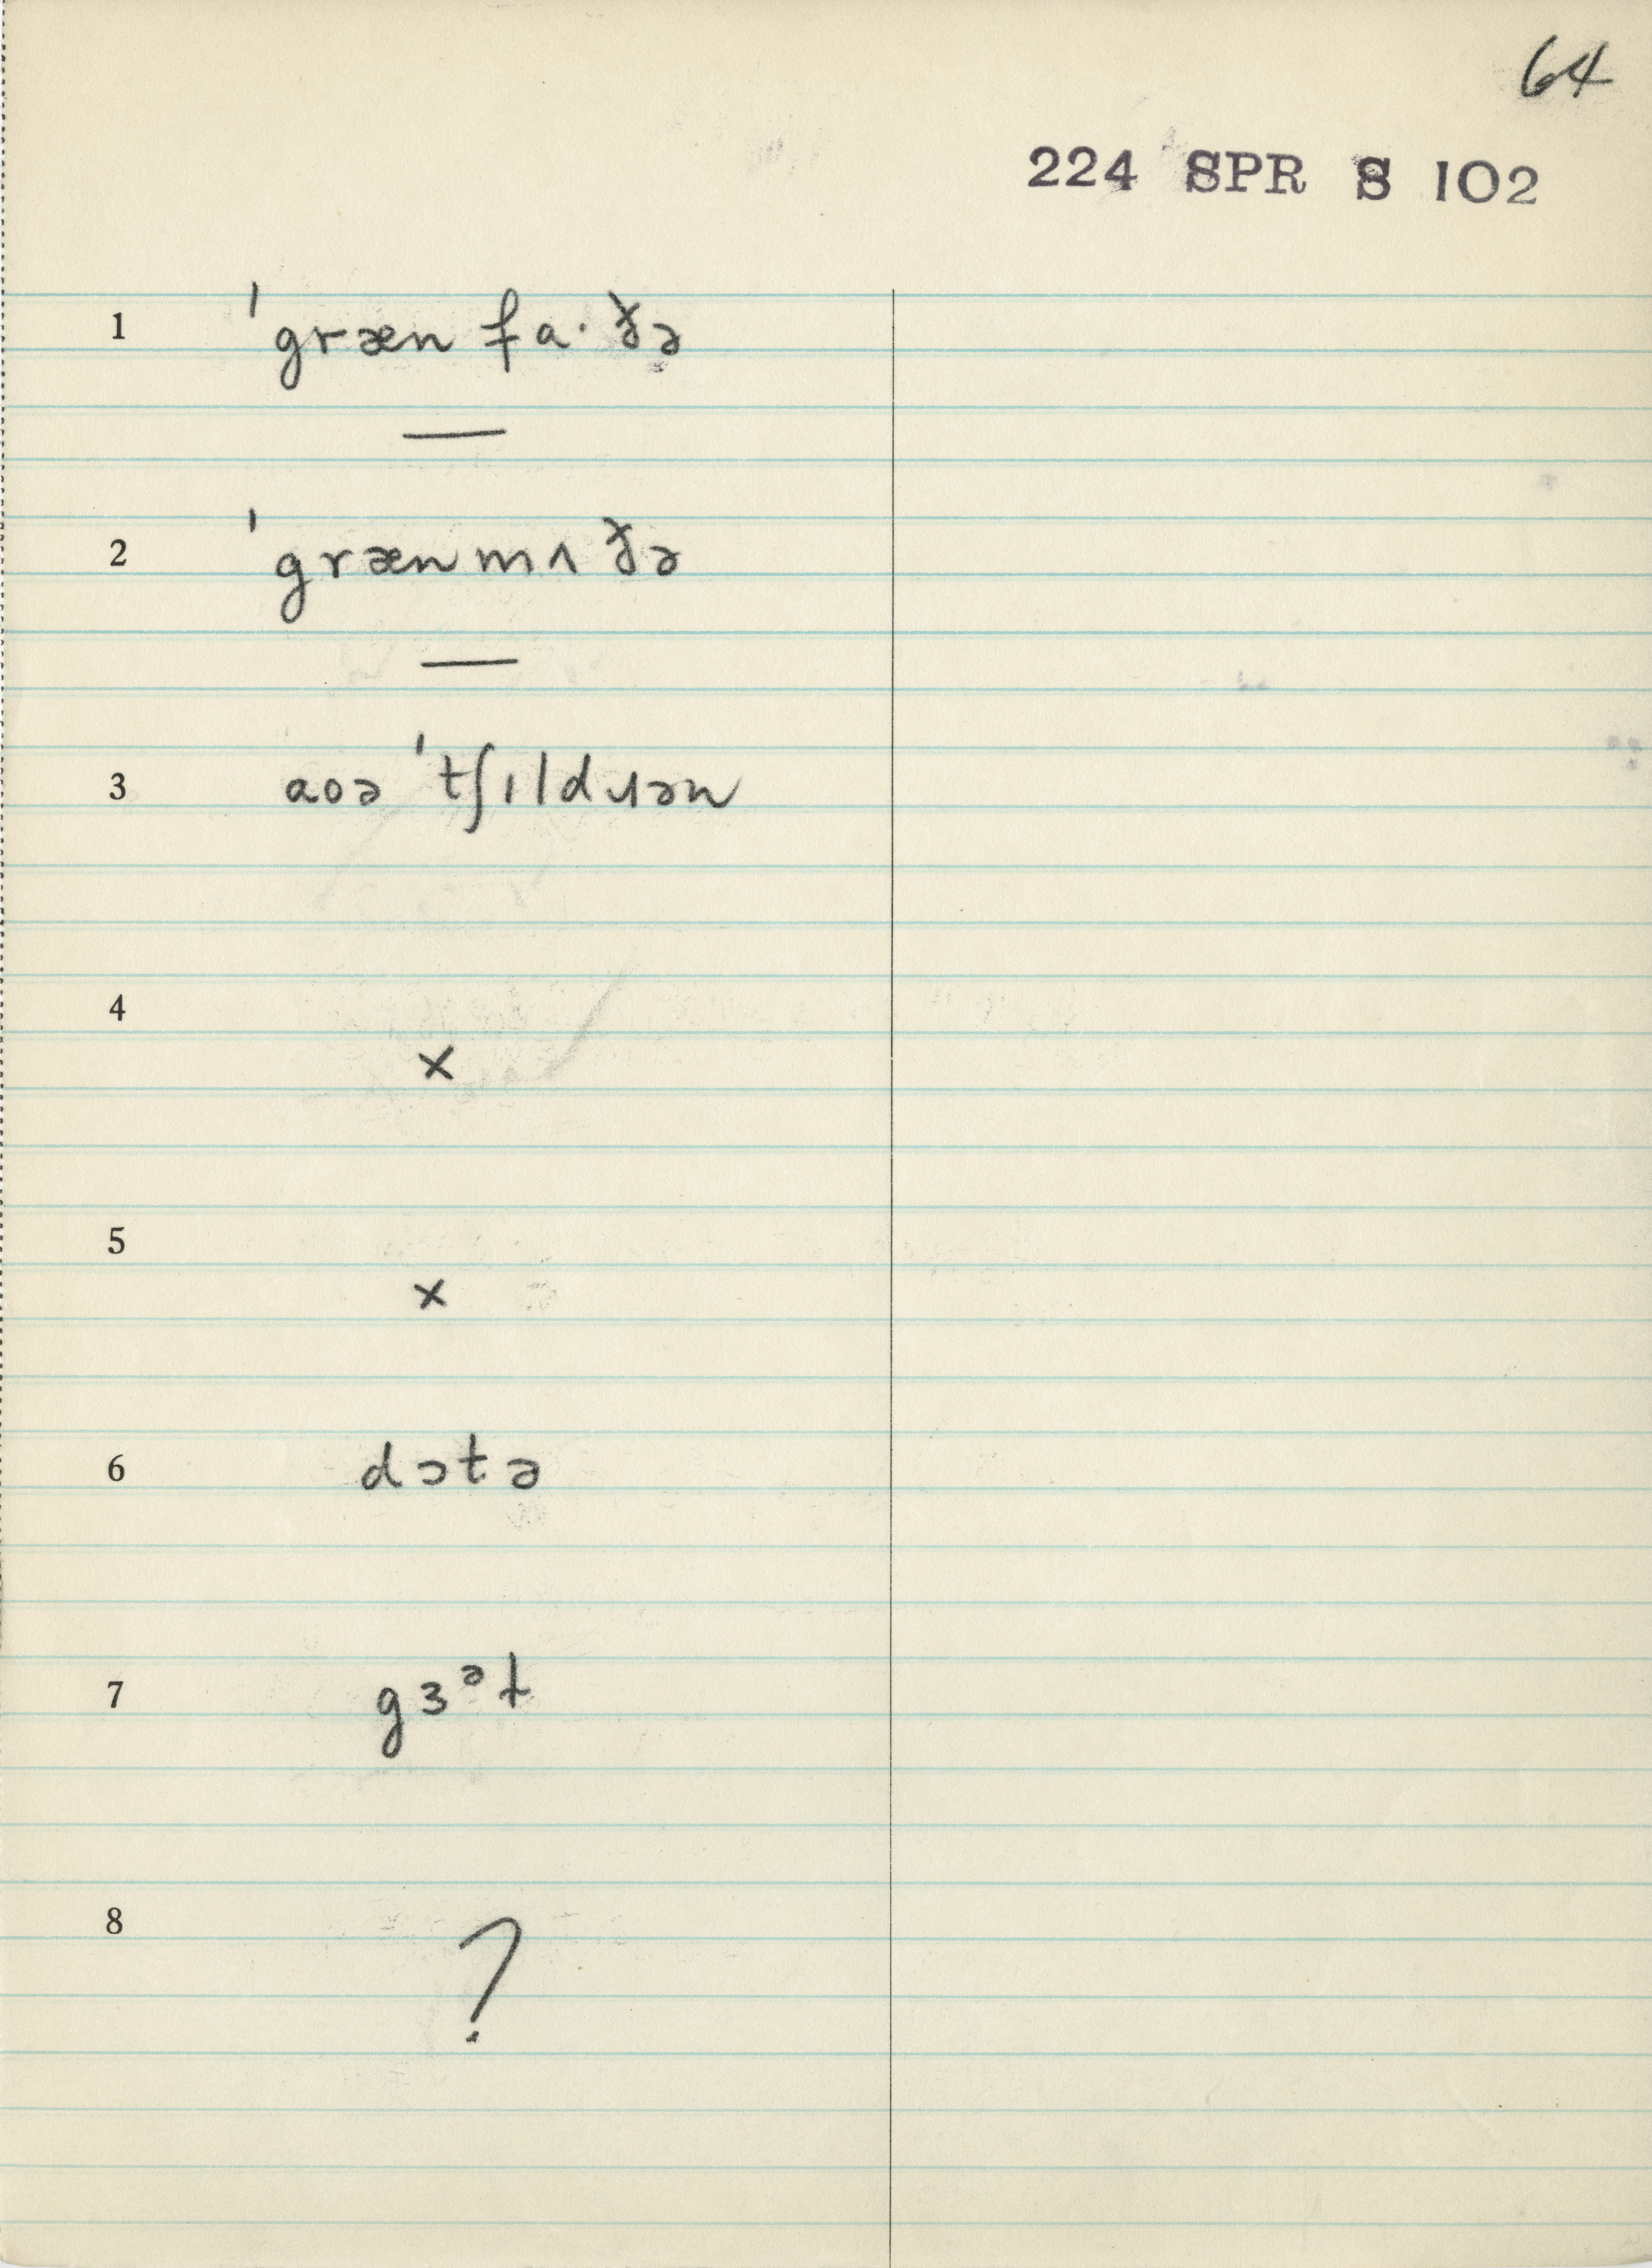 64
224 SPR S 102
1 ˈgræn fa·ðə
—
2 ˈgrænmʌðə
—
3 aoə ˈtʃɪldɹən
4
×
5
×
6 dɔtə
7 gɜᵊɫ
8
?